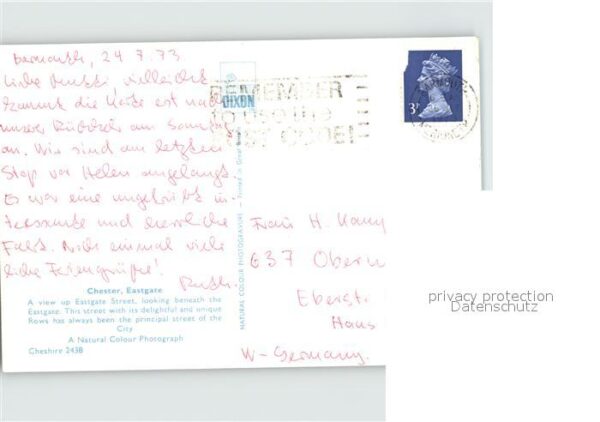 Barmouth, 24.7.73
Liebe Mutti, vielleicht
kommt die Karte erst nach
unserer Rückkehr am Samstag
an. Wir sind am letzten
Stop vor Helen angelangt.
Es war eine ungeheuer in-
teressante und herrliche
Fahrt. Noch einmal viele
liebe Feriengrüße!
Ruth.
Chester, Eastgate
A view up Eastgate Street, looking beneath the
Eastgate. This street with its delightful and unique
Rows has always been the principal street of the
City
A Natural Colour Photograph
Cheshire 243B
DIXON
NATURAL COLOUR PHOTOGRAVURE — Printed in Great
REMEMBER
to use the
POST CODE!
3P
Frau H.
637 Oberu
Eberstr
Haus
W-Germany.
privacy protection
Datenschutz